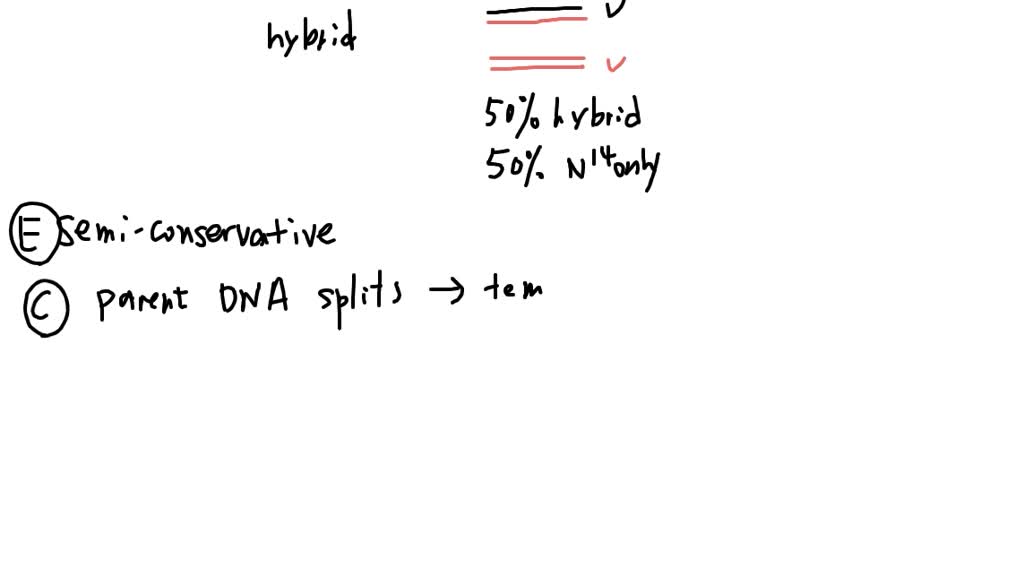 hybrid
50% hybrid
50% N14 only
E semi-conservative
C parent DNA splits → tem